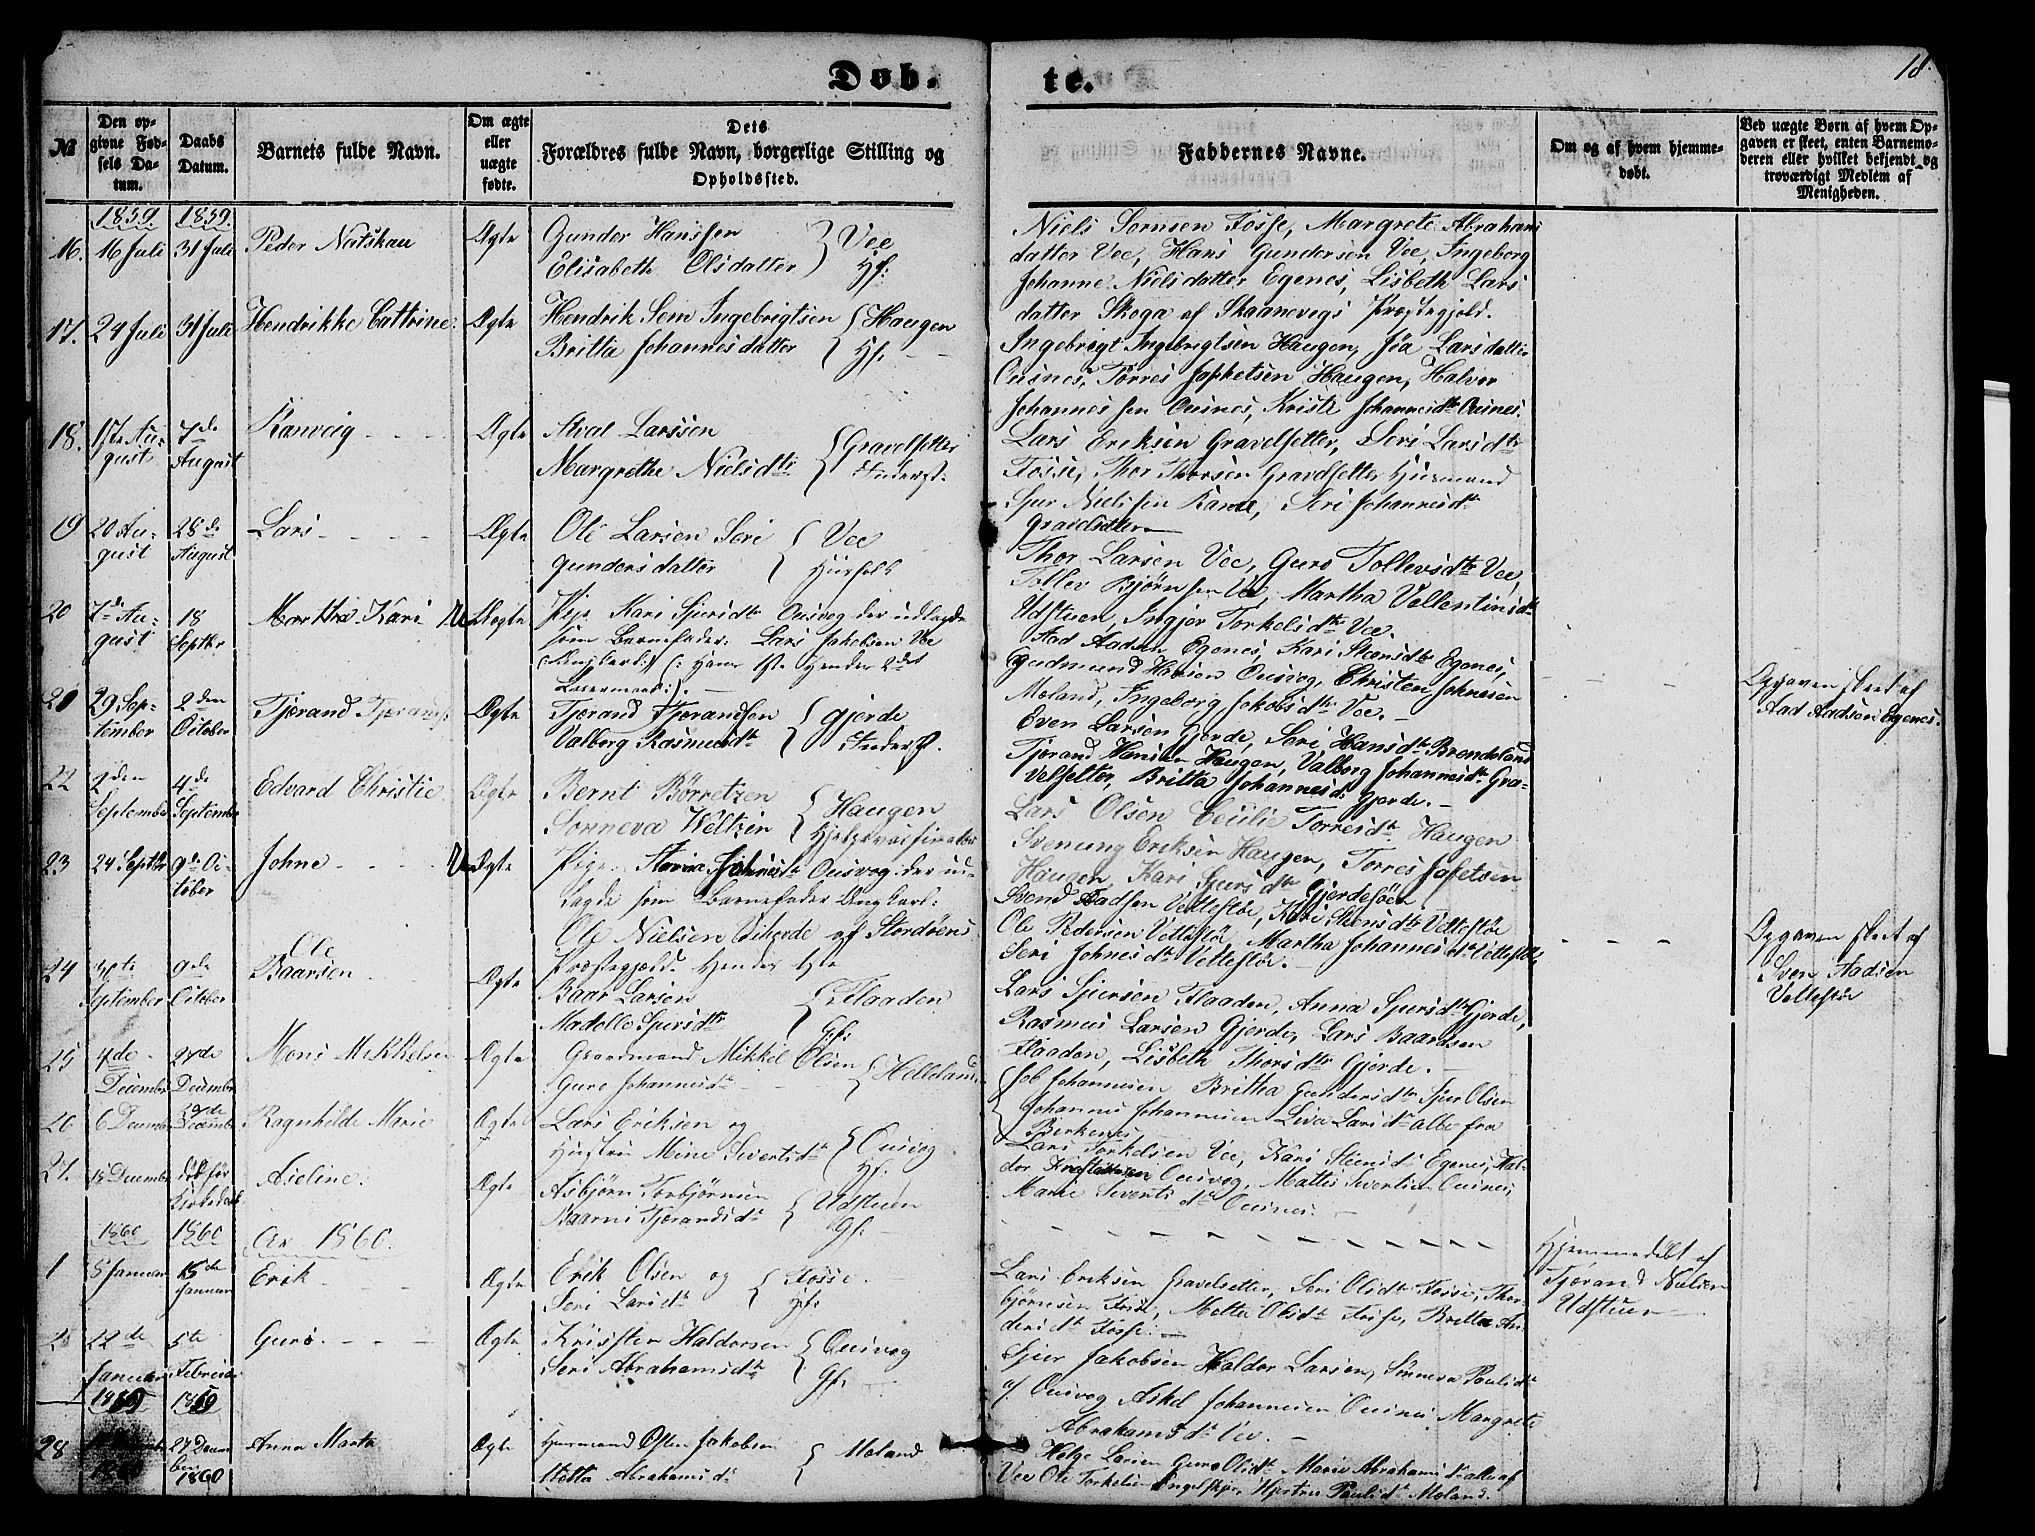 Døb.
te.
18.
No
Den op-
givne Fød-
sels Da-
tum.
Daabs
Datum.
Barnets fulde Navn.
Om ægte
eller
uægte
fødte.
Dets
Forældres fulde Navn, borgerlige Stilling og
Opholdssted.
Faddernes Navne.
Om og af hvem hjemme-
døbt.
Ved uægte Børn af hvem Op-
gaven er skeet, enten Barnemo-
deren eller hvilket bekjendt og
troværdigt Medlem af
Menigheden.
1859. 1859.
16. 16 Juli 31 Juli Peder Natskau Ægte
Gunder Hanssen
Elisabeth Olsdatter } Vee
Hf:
Niels Tossse, Margrete Abrahams
datter Vee, Hans Gundersen Vee, Ingeborg
Johanne Nielsdatter Egenes, Lisbeth Lars
datter Skoga af Skaanevigs Præstegjeld.
17. 24 Juli 31 Juli Hendrikke Cattrine. Ægte
Hendrik Sem Ingebrigtsen
Britta Johannesdatter { Haugen
Hf:
Ingebrigt Ingebrigtsen Haugen, Larsdatter
Ousnes, Torres Japhetsen Haugen, Halvor
Johannessen Ousnes, Kristi Johannesdtr Ousnes.
18. 17de Au-
gust 7de
August Ranveig Ægte
Larssen
Margrethe Nielsdtr { Gravelsetter
Lars Eriksen Gravelsetter, Seri Larsdtr
Fosse, Thor Thorsen Gravelsetter Husmand
Sjur Nielssen, Seri Johannesdtr
Gravelsetter
19 20 Au-
gust 28de
August Lars Ægte
Ole Larsen Seri
Gundersdatter { Vee
Husfolk
Thor Larsen Vee, Guro Tollevsdtr Vee,
Tollev Bjørnsen Vee, Martha Vellentinsdtr
Udstuen, Ingjer Torkelsdtr Vee.
20 7de Au-
gust 18
Septbr Martha Kari Uægte
Pige Kari Sjursdtr Ousvog der udlagde
som Barnefader: Lars Jakobsen Vee
(: Hans 1ste Hendes 2det
Leiermaal:).
Aad Aadsen Egenes, Kari Stensdtr Egenes,
Gudmund Hansen Ousvog, Christen Johnesen
Moland, Ingeborg Jakobsdtr Vee.
Opgaven skeet af
Aad Aadsen Egenes.
21 29 Sep-
tember 2den
October Tjerand Ægte
Tjerand Tjerandsen
Valborg Rasmusdtr { Gjerde
Even Larsen Gjerde, Seri Hansdtr Brendeland
Tjerand Hansen Haugen, Valborg Johannesdtr Gra-
velsetter, Britta Johannesdtr Gjerde.
22 2den
September 4de
September Edvard Christie Ægte
Bernt Børretzen
Sonneva Weltzin { Haugen
Lars Olsen Cecilie Torresdtr Haugen
Svenung Eriksen Haugen, Torres Jafetsen
Haugen, Kari Sjursdtr Gjerdesøen
23 24 Septbr 9de Oc-
tober Johne Uægte
Pige: Johnesdtr Ousvog der ud-
lagde som Barnefader Ungkarl:
Ole Nielsen af Stordøens
Præstegjeld. Hendes 1ste
Svend Aadsen Vettestøe, Kari Stensdtr Vettestøe
Ole Pedersen Vettestøe, Martha Johannesdtr Vettestøe,
Seri Johnesdtr Vettestøe.
Opgaven skeet af
Sven Aadsen
Vettestøe
24 September 9de
October Ole
Baarsen Ægte
Baar Larsen
Madelle Sjursdtr { Flaaden
Gf:
Lars Sjursen Flaaden, Anna Sjursdtr Gjerde,
Rasmus Larsen Gjerde, Lars Baardsen
Flaaden, Lisbeth Thorsdtr Gjerde.
25 4de
December 27de
December Mons Mikkelsen Ægte
Gaardmand Mikkel Olsen
Guro Johannesdtr { Helleland
Job Johannesen Britha Gundersdtr Sjur Olsen
Johannes Johannesen Liva Larsdtr alle fra
Birkenes
26 6 Decembr Decembr Ragnhilde Marie Ægte
Lars Eriksen og
Hustru Mine Sivertsdtr { Ousvog
Hf:
Lars Torkelsen Vee, Kari Steensdtr Egenes, Hal-
dor Ousvog, Mattis Sivertsen Ousnes,
Marie Sivertsdtr Ousnes.
27. 18 December død før
Aseline. Ægte
Asbjørn Torbjørnsen
Tjerandsdtr { Udstuen
Gf:
Hjemmedøbt af
Tjerand Nielsen
Udstuen
1860 1860 Aar 1860.
1 5 Januar 15de
Januar Erik Ægte
Erik Olsen og
Seri Larsdtr { Fosse
Hf:
Lars Eriksen Gravelsetter, Seri Olsdtr Fosse, Thor-
bjørnsen, Metta Olsdtr, Britta An-
dersdtr Fosse.
22de
Januar 5te
Februar Guro Ægte
Krisften Haldorsen
Seri Abrahamsdtr { Ousvog
Gf:
Sjur Jakobsen Haldor Larsen, Sønneva Paulsdtr
af Ousvog Askel Johannesen Ousnes Margrete
Abrahamsdtr Vee.
28 27 Decem
ber 1860 Anna Marta Ægte
Husmand Østen Jakobsen
Metta Abrahamsdtr { Moland
Helge Larsen Guro Olsdtr Marie Abrahamsdtr alle af
Vee Ole Torkelsen Hustru Paulsdtr Moland.